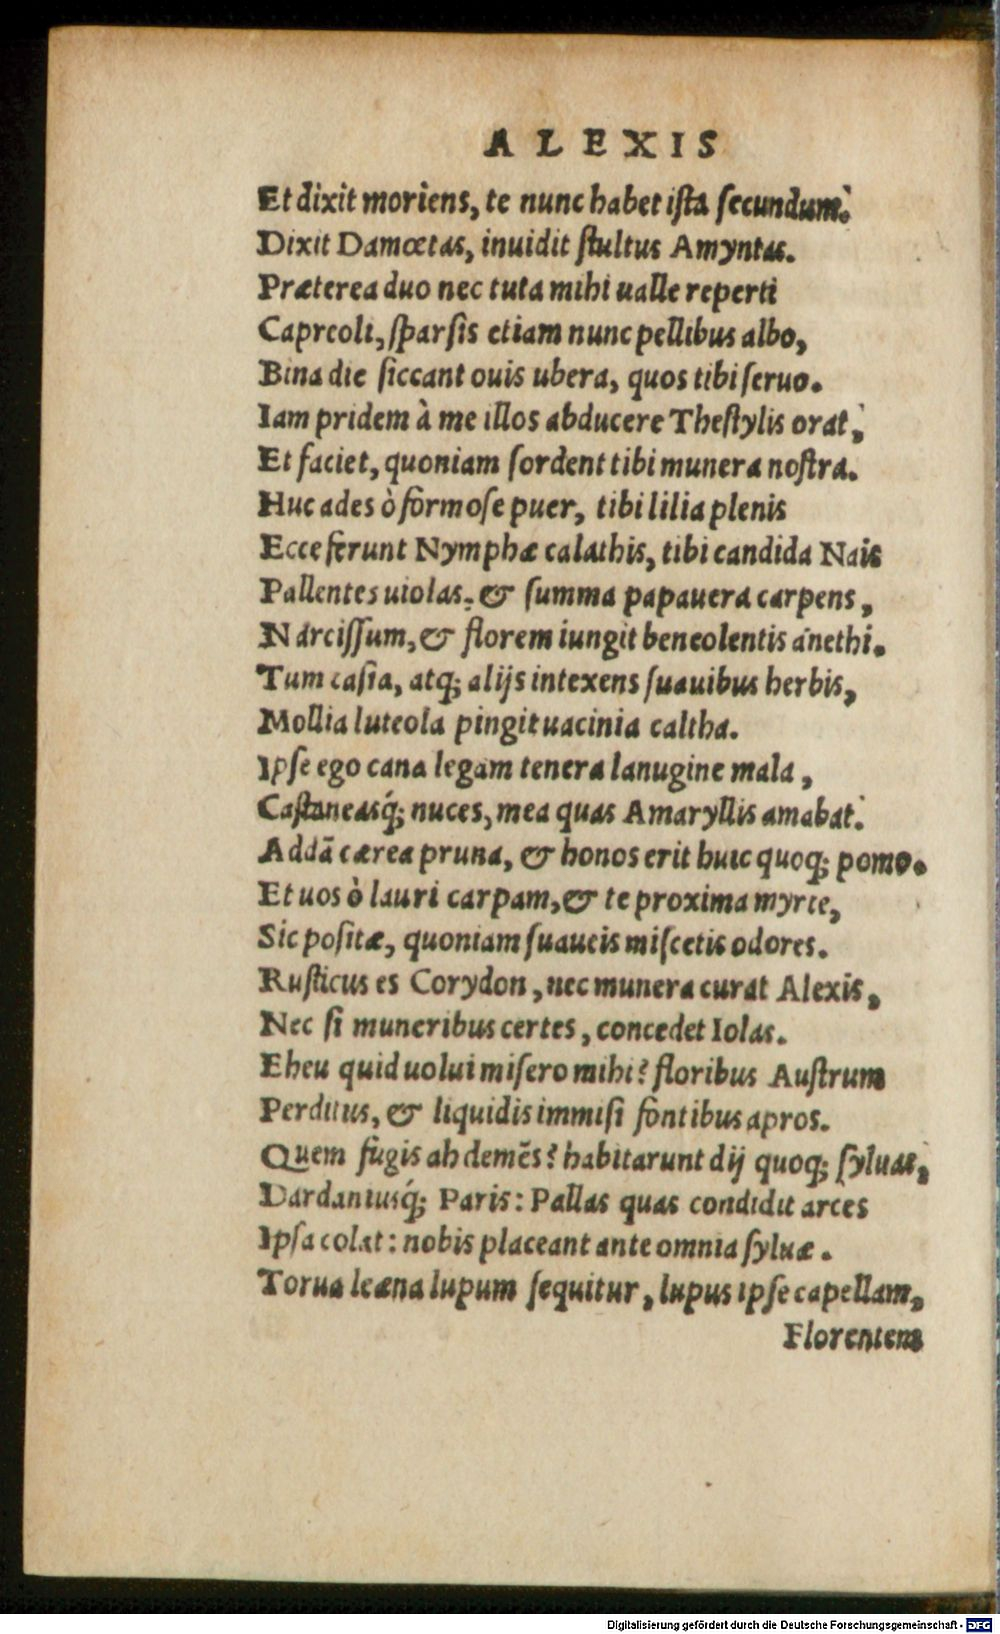 ALEXIS
Et dixit moriens, te nunc habet ista secundum.
Dixit Damœtas, inuidit stultus Amyntas.
Præterea duo nec tuta mihi ualle reperti
Capreoli, sparsis etiam nunc pellibus albo,
Bina die siccant ouis ubera, quos tibi seruo.
Iam pridem à me illos abducere Thestylis orat,
Et faciet, quoniam sordent tibi munera nostra.
Huc ades ò formose puer, tibi lilia plenis
Ecce ferunt Nymphæ calathis, tibi candida Nais
Pallentes uiolas, & summa papauera carpens,
Narcissum, & florem iungit beneolentis anethi.
Tum casia, atq; alijs intexens suauibus herbis,
Mollia luteola pingit uacinia caltha.
Ipse ego cana legam tenera lanugine mala,
Castaneasq́; nuces, mea quas Amaryllis amabat.
Addā cærea pruna, & honos erit huic quoq; pomo.
Et uos ò lauri carpam, & te proxima myrte,
Sic positæ, quoniam suaueis miscetis odores.
Rusticus es Corydon, nec munera curat Alexis,
Nec si muneribus certes, concedet Iolas.
Eheu quid uolui misero mihi? floribus Austrum
Perditus, & liquidis immisi fontibus apros.
Quem fugis ah demēs? habitarunt dij quoq; syluas,
Dardaniusq́; Paris: Pallas quas condidit arces
Ipsa colat: nobis placeant ante omnia syluæ.
Torua leæna lupum sequitur, lupus ipse capellam,
Florentem
Digitalisierung gefördert durch die Deutsche Forschungsgemeinschaft - DFG